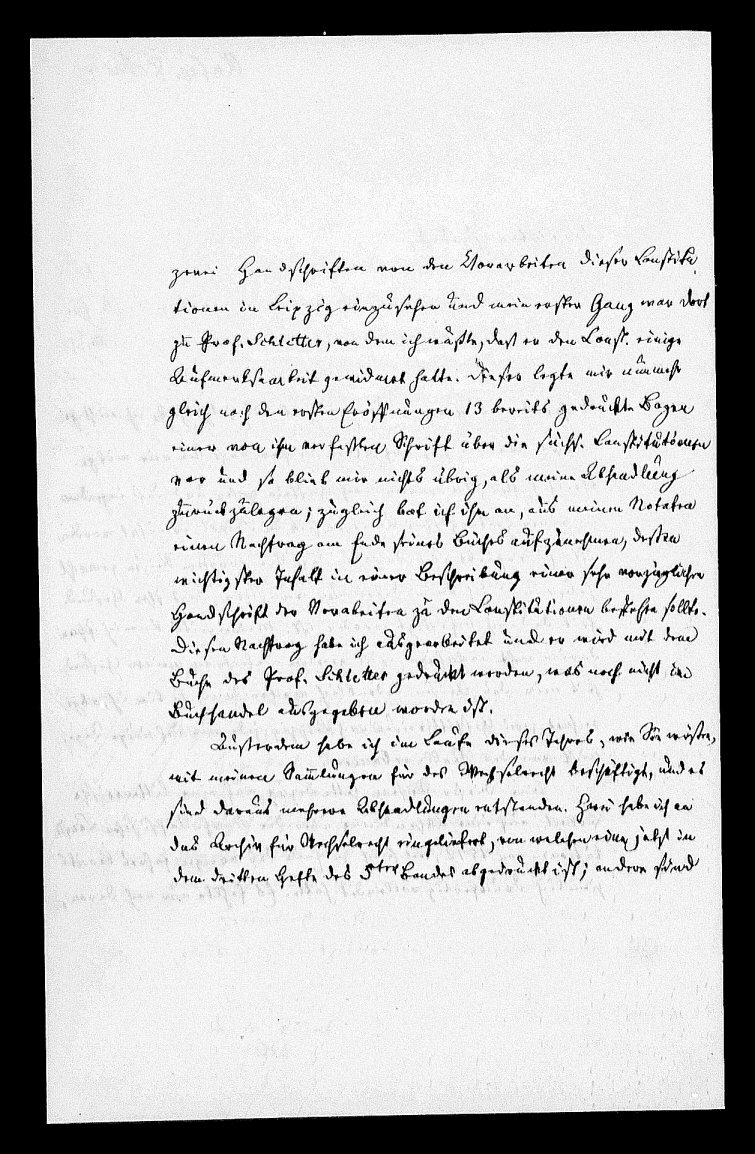 zwei Handschriften von den Vorarbeiten dieser Constitu-
tionen in Leipzig einzusehen und mein erster Gang war dort
zu Prof. Schletter, von dem ich wußte, daß er den Const. einige
Aufmerksamkeit gewidmet hatte. Dieser legte mir nunmehr
gleich nach den ersten Eröffnungen 13 bereits gedruckte Bogen
einer von ihm verfaßten Schrift über die sächs. Constitutionen
vor und so blieb mir nichts übrig, als meine Abhandlung
zurückzulegen; zugleich bot ich ihm an, aus meinen Notaten
einen Nachtrag am Ende seines Buches aufzunehmen, dessen
wichtigster Inhalt in einer Beschreibung einer sehr vorzüglichen
Handschrift der Vorabeiten zu den Constitutionen bestehen sollte.
Diesen Nachtrag habe ich ausgearbeitet und er wird mit dem
Buche des Prof. Schletter gedruckt werden, was noch nicht im
Buchhandel ausgegeben worden ist.
Außerdem habe ich im Laufe dieses Jahres, wie Sie wissen,
mit meinen Sammlungen für das Wechselrecht beschäftigt, und es
sind daraus mehrere Abhandlungen entstanden. Zwei habe ich an
das Archiv für Wechselrecht eingeliefert, von welchen eine jetzt in
dem dritten Hefte des 5ten Bandes abgedruckt ist; andere sind